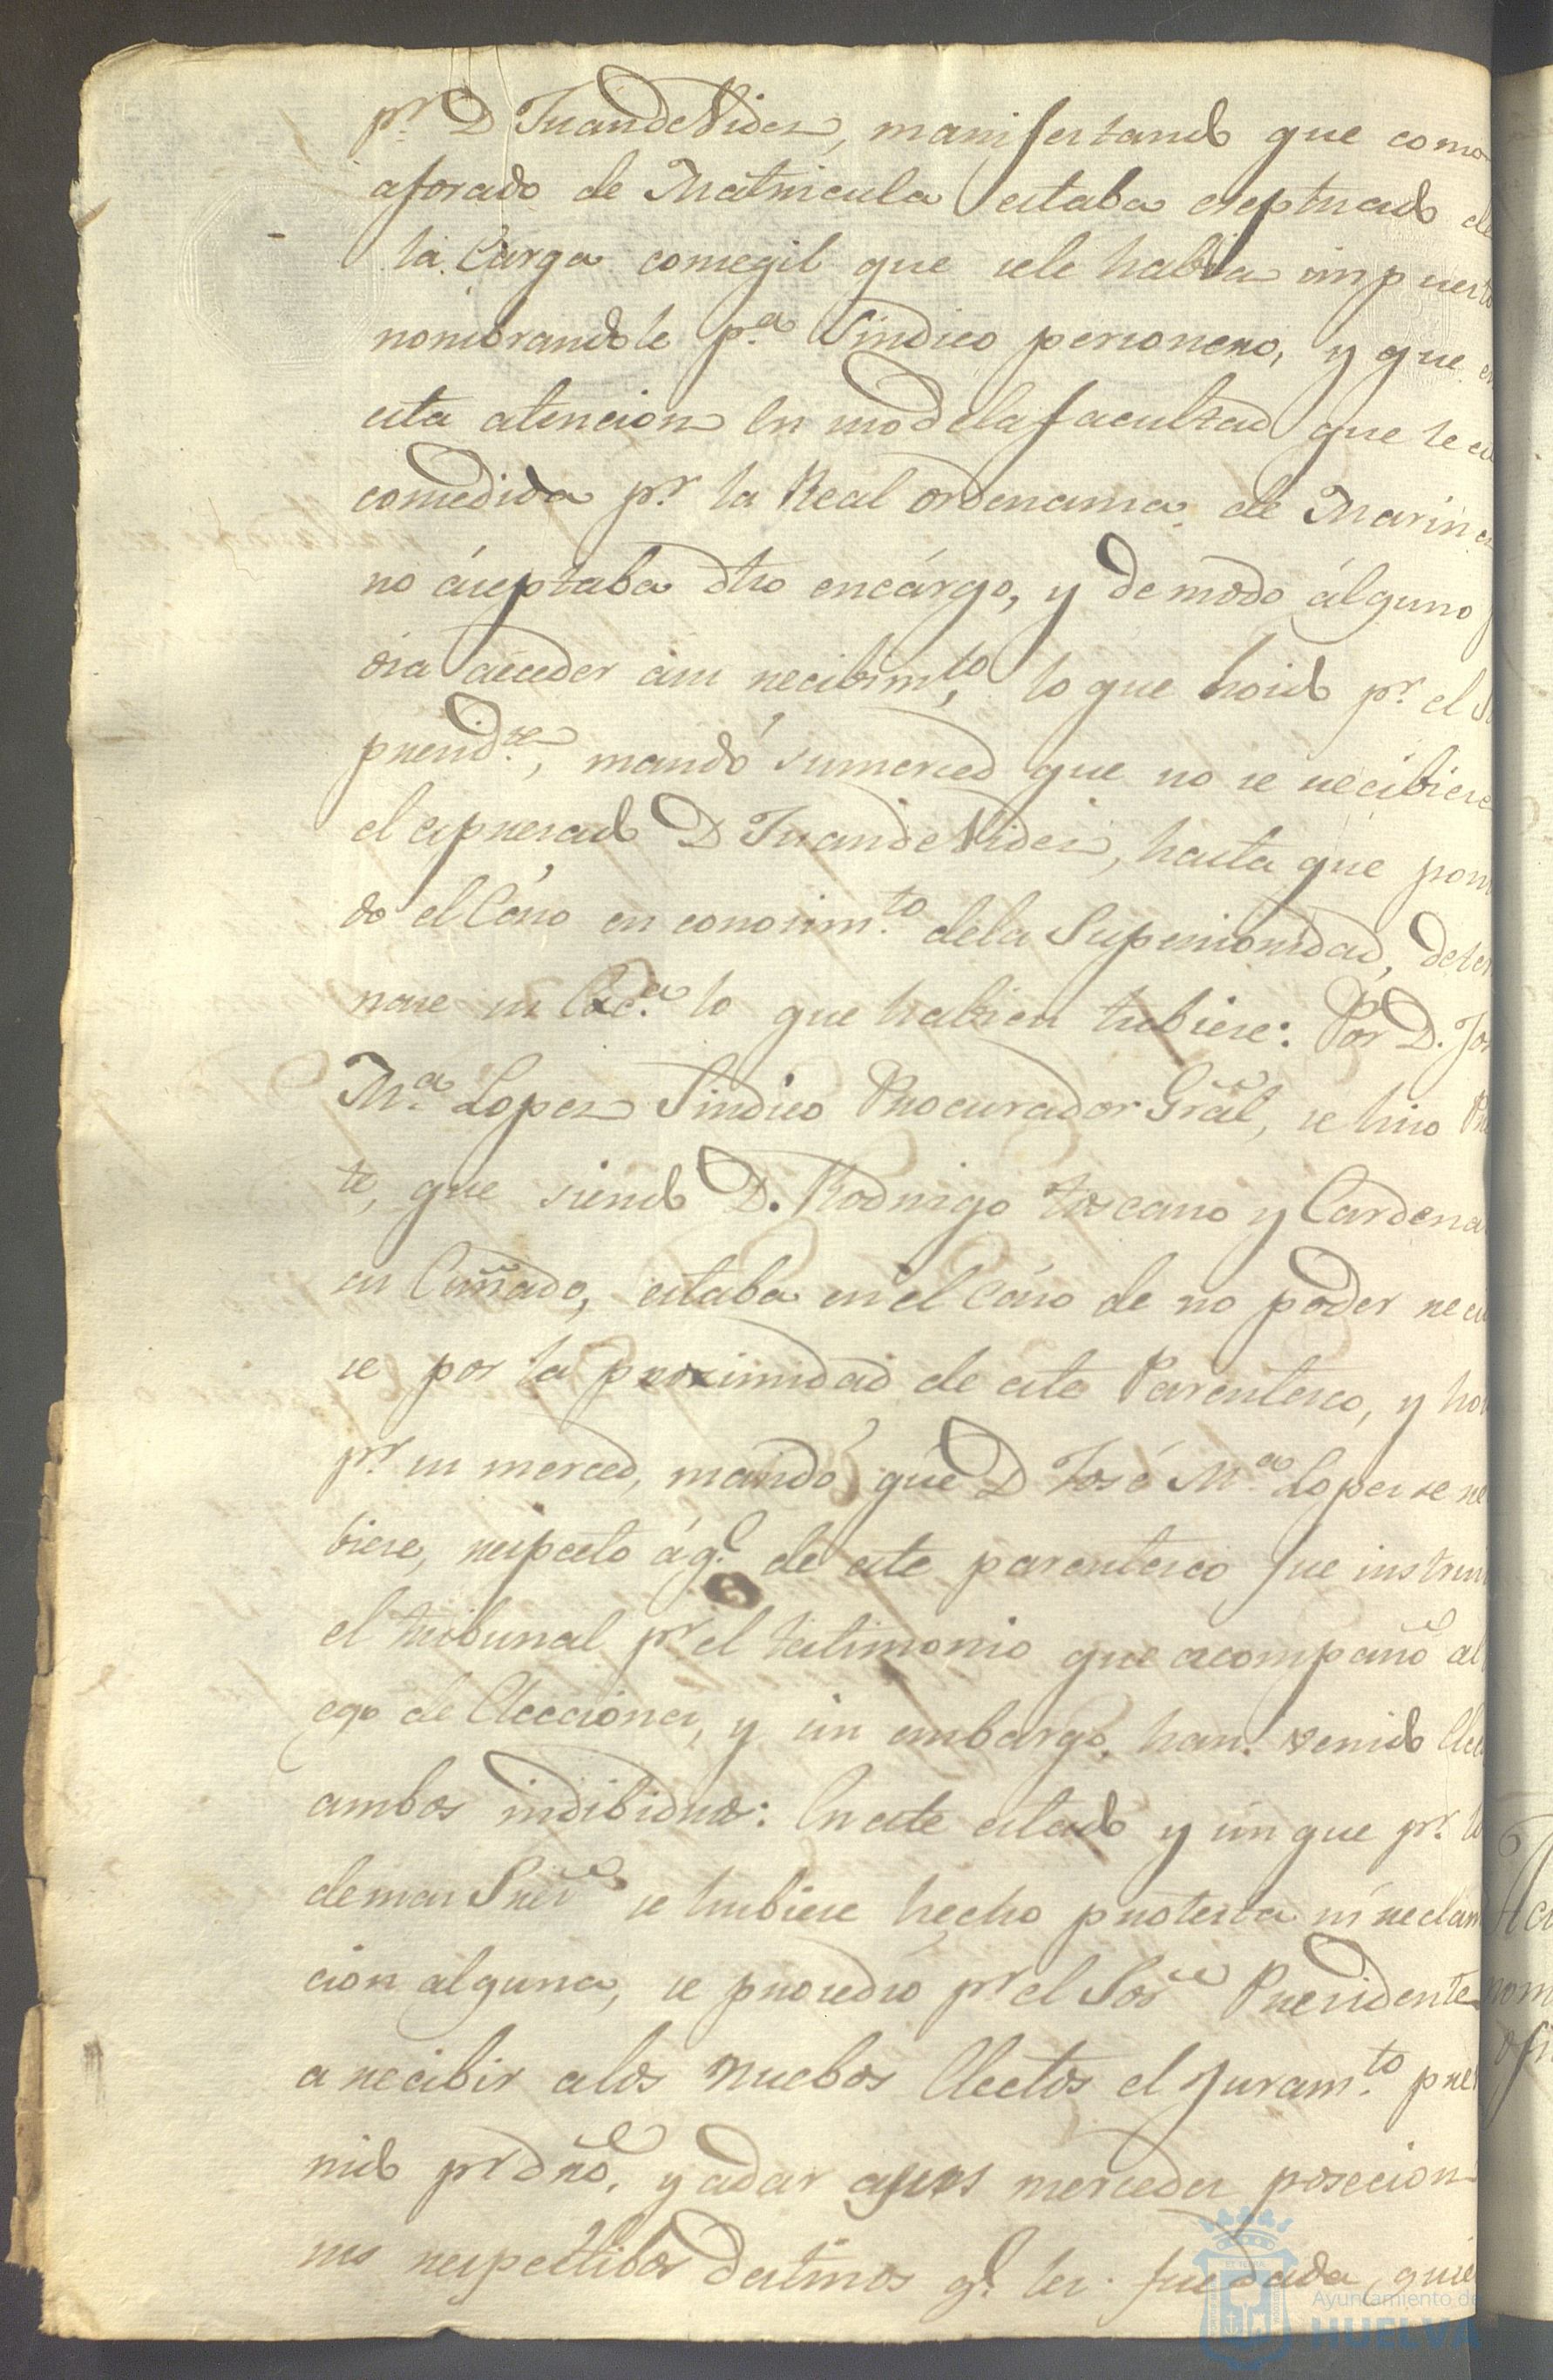 pr. D Juan de Vides, manifestando que como
aforado de Matricula estaba eseptuado de
la Carga consegil que sele habia impuesto
nombrandole pa. Sindico personero, y que en
esta atencion en uso dela facultad que le es
consedida pr. la Real ordenansa de Marina
no aseptaba dho encárgo, y de modo álguno po
dia acceder ásu recibimto., lo que hoido pr. el Sr
presidte., mandó sumerced que no se recibiese
el espresado D Juan de Vides, hasta que ponien
do el Cáso en conosimto. dela Superioridad, deter
nase su Exca. lo que habien tubiese: Por D. José
Ma. Lopez Sindico Procurador Gral, se hiso Pre
te, que siendo D. Rodrigo toscano y Cardenas
su Cuñado, estaba en el Cáso de no poder reci
se por la proximidad de este Parentesco, y hoi
pr. su merced, mandó que D José Ma. Lopez se re
biese, respecto á q.e de este parentesco fue instrui
el tribunal pr el testimonio que acompañó al
ego de Elecciones, y sin embargo, han venido Elec
ambos indibiduos: En este estado y sin que pr. lo
demas Sres se hubiese hecho protesta ni reclama
cion alguna, se prosedio pr el Sor Presidente
a recibir alos nuebos Electos el Juramto. pre
nido pr dro. y adar asus mercedes posecion
sus respectibos destinos qe. les fue dada, quie
Ayuntamiento de
HUELVA